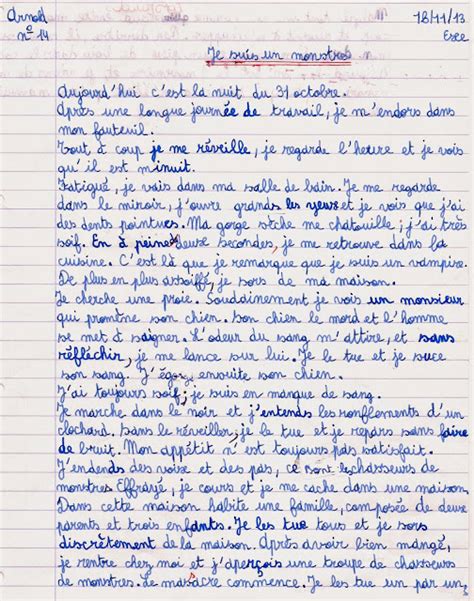 Arnold 18/11/13
n° 14 Esee
Je suis un monstre
Aujourd'hui c'est la nuit du 31 octobre.
Après une longue journée de travail, je m'endors dans
mon fauteuil.
Tout à coup je me réveille, je regarde l'heure et je vois
qu'il est minuit.
Fatigué, je vais dans ma salle de bain. Je me regarde
dans le miroir, j'ouvre grands les yeux et je vois que j'ai
des dents pointues. Ma gorge sèche me chatouille ; j'ai très
soif. En à peine deux secondes, je me retrouve dans la
cuisine. C'est là que je remarque que je suis un vampire.
De plus en plus assoiffé, je sors de ma maison.
Je cherche une proie. Soudainement je vois un monsieur
qui promène son chien. Son chien le mord et l'homme
se met à saigner. L'odeur du sang m'attire, et sans
réfléchir, je me lance sur lui. Je le tue et je suce
son sang. J'égorge ensuite son chien.
J'ai toujours soif ; je suis en manque de sang.
Je marche dans le noir et j'entends les ronflements d'un
clochard. Sans le réveiller, je le tue et je repars sans faire
de bruit. Mon appétit n'est toujours pas satisfait.
J'endends des voix et des pas, ce sont les chasseurs de
monstres. Effrayé, je cours et je me cache dans une maison.
Dans cette maison habite une famille, composée de deux
parents et trois enfants. Je les tue tous et je sors
discrètement de la maison. Après avoir bien mangé,
je rentre chez moi et j'aperçois une troupe de chasseurs
de monstres. Le massacre commence. Je les tue un par un,